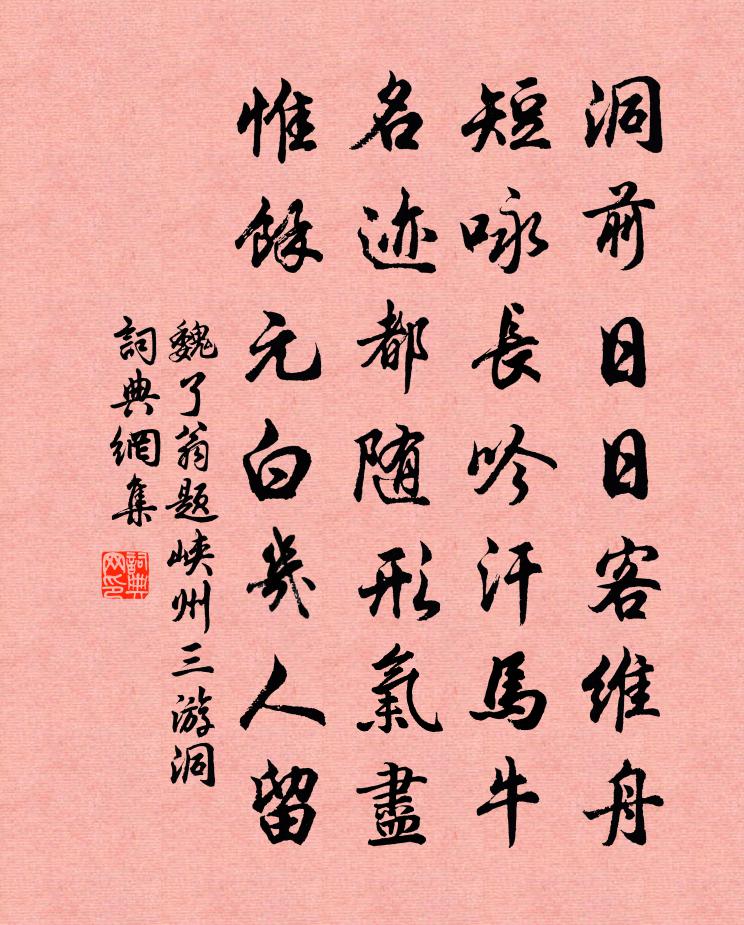 洞前日日客维舟
短咏長吟汗馬牛
名迹都随形氣盡
惟餘元白幾人留
魏了翁题峡州三游洞
詞典網集
詞典网印